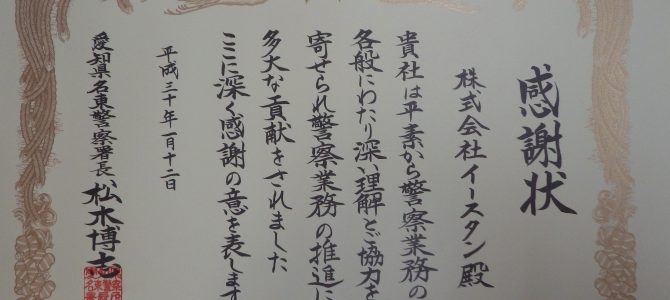 感謝状
株式会社イースタン殿
貴社は平素から警察業務の
各般にわたり深い理解とご協力を
寄せられ警察業務の推進に
多大な貢献をされました
ここに深く感謝の意を表します
平成三十年一月十二日
愛知県名東警察署長 松木博志